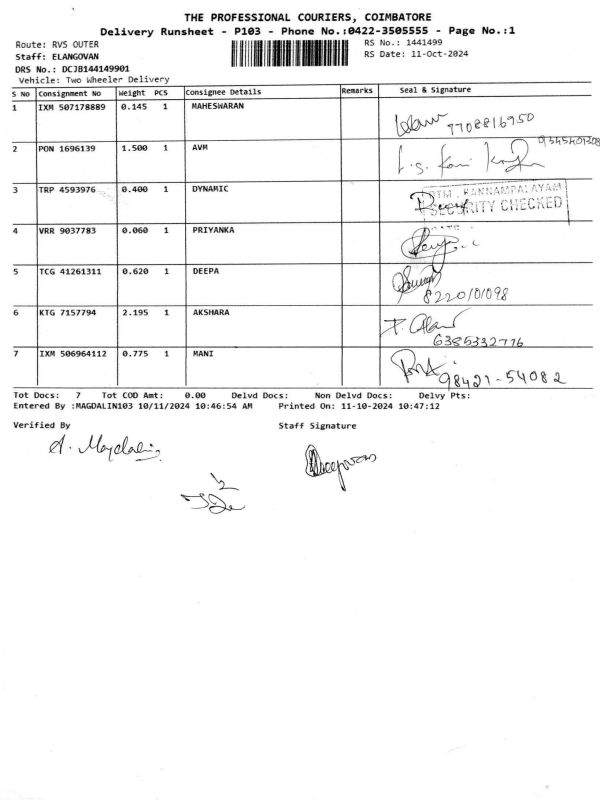 THE PROFESSIONAL COURIERS, COIMBATORE
Delivery Runsheet - P103 - Phone No.:0422-3505555 - Page No.:1
Route: RVS OUTER RS No.: 1441499
Staff: ELANGOVAN RS Date: 11-Oct-2024
DRS No.: DCJB144149901
Vehicle: Two Wheeler Delivery
S No Consignment No Weight PCS Consignee Details Remarks Seal & Signature
1 IXM 507178889 0.145 1 MAHESWARAN
7708816950
2 PON 1696139 1.500 1 AVM
3 TRP 4593976 0.400 1 DYNAMIC
KANNAMPALAYAM
SECURITY CHECKED
4 VRR 9037783 0.060 1 PRIYANKA
5 TCG 41261311 0.620 1 DEEPA
8220101098
6 KTG 7157794 2.195 1 AKSHARA
6385332776
7 IXM 506964112 0.775 1 MANI
98421-54082
Tot Docs: 7 Tot COD Amt: 0.00 Delvd Docs: Non Delvd Docs: Delvy Pts:
Entered By :MAGDALIN103 10/11/2024 10:46:54 AM Printed On: 11-10-2024 10:47:12
Verified By Staff Signature
A. Magdalin